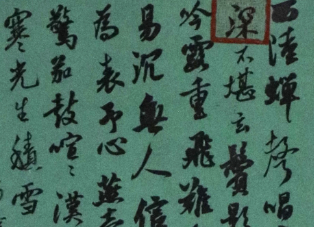 西陸蟬聲唱
深不堪玄鬢影
吟露重飛難
易沉無人信
為表予心燕
驚笳鼓喧〻漢
寒光生積雪